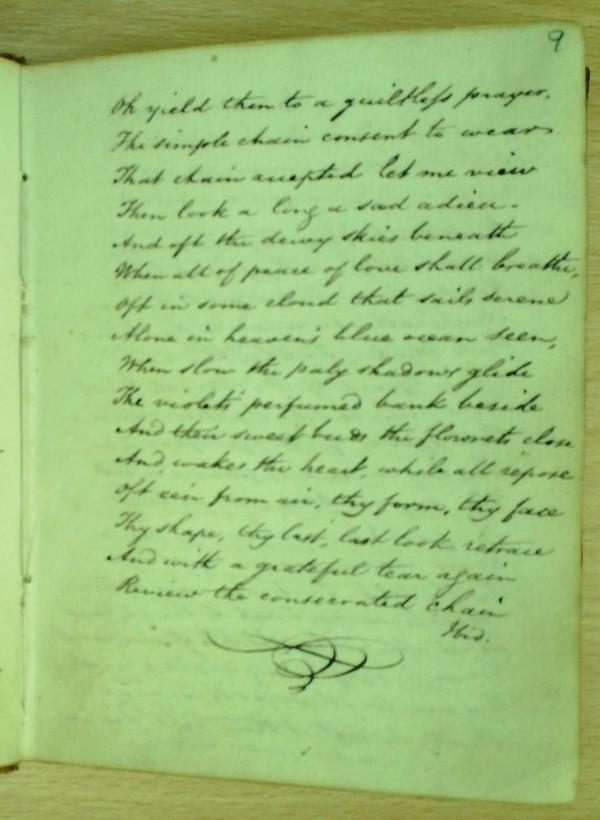 9
Oh yield then to a guiltless prayer,
The simple chain consent to wear
That chain accepted let me view
Then look a long a sad adieu.
And oft the dewy skies beneath
When all of peace of love shall breathe,
Oft in some cloud that sails serene
Alone in heaven's blue ocean seen,
When slow the paly shadows glide
The violets' perfumed bank beside
And their sweet buds the flowrets close
And wakes the heart, while all repose
Oft e'en from air, thy form, thy face
Thy shape, thy last, last look retrace
And with a grateful tear again
Review the consecrated chain
Ibid.